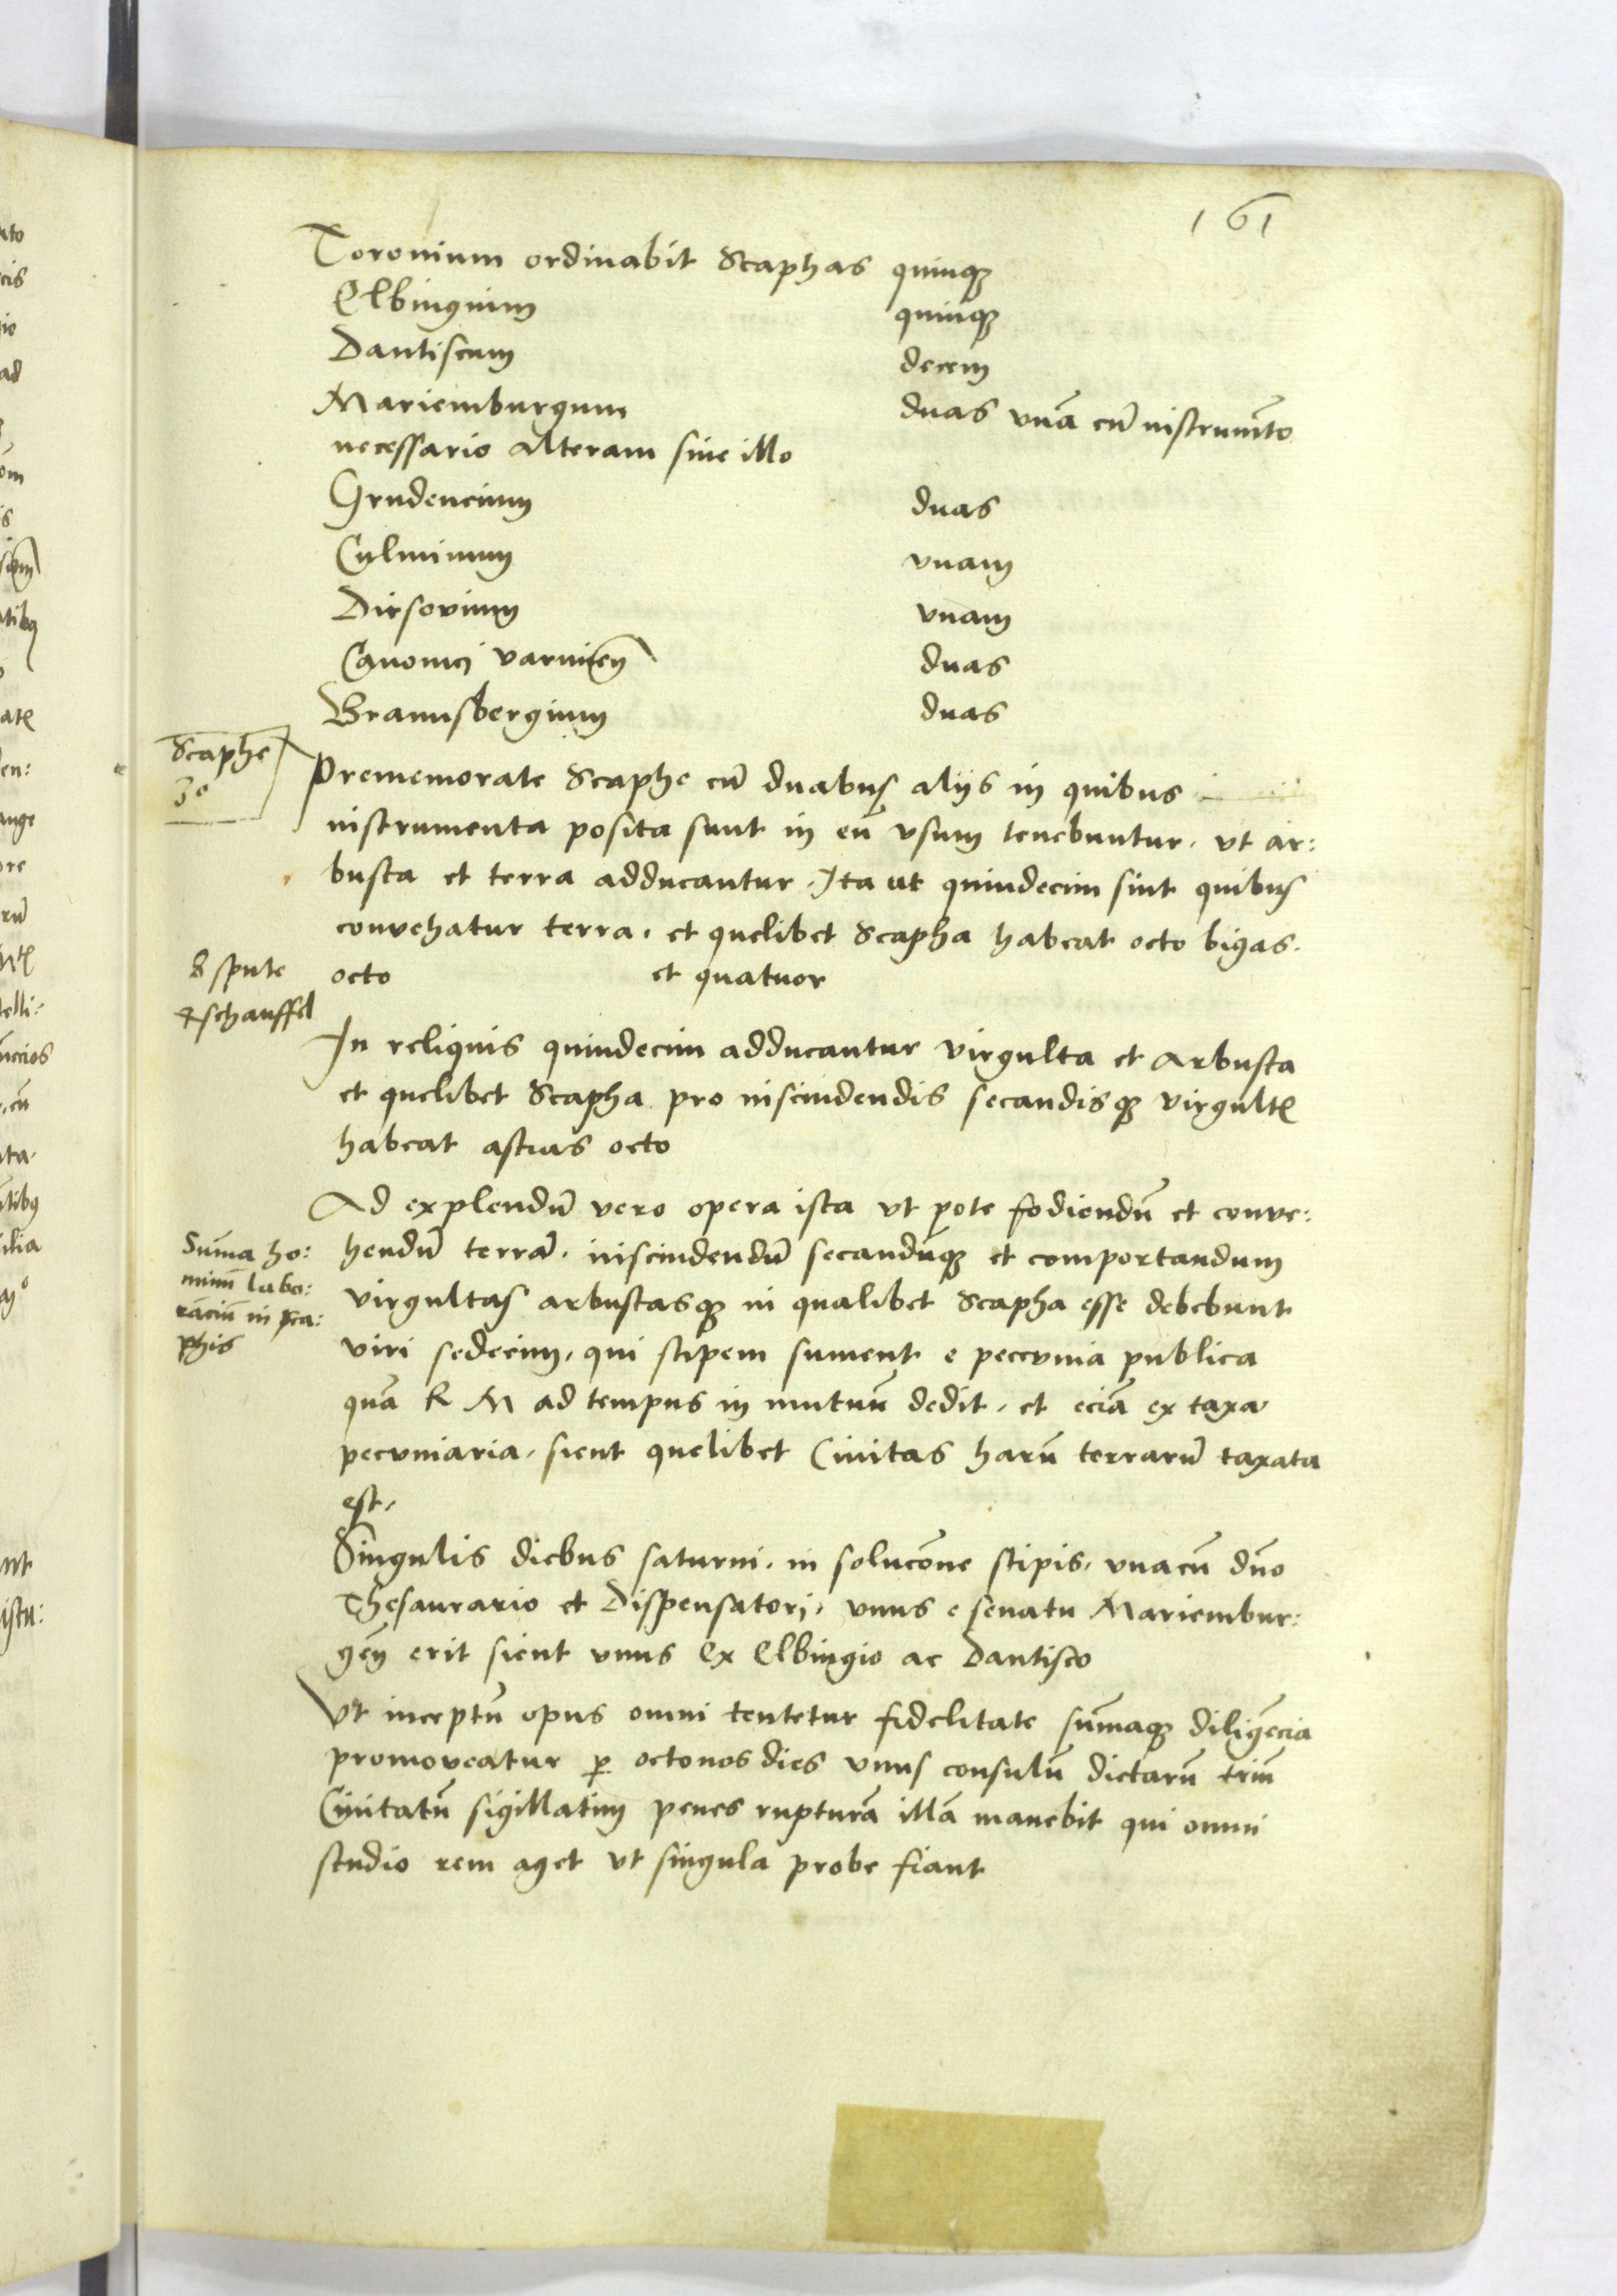 161
Toronium ordinabit Scaphas quinqꝫ
Elbingnim quinqꝫ
Dantiscum decem
Mariemburgum duas vnã cũ nistrumẽto
necessario alteram sine illo
Grudencium duas
Culminum vnam
Dirsovium vnam
Canonici varmieñ duas
Braunsbergium duas
Scaphe
30
Prememorate Scaphe cũ duabus aliis in quibus
instrumenta posita sunt in eũ vsum tenebuntur. vt ar:
busta et terra adducantur. Ita ut quindecim sint quibus
convehatur terra. et quelibet Scapha habeat octo bigas.
octo et quatuor
8 spate
4 schauffel
In reliquis quindecim adducantur virgulta et Arbusta
et quelibet Scapha pro inscindendis secandisqꝫ virgultꝭ
habeat ascias octo
Ad explendũ vero opera ista vt pote fodiendũ et conve:
hendũ terrã. inscindendũ secandũqꝫ et comportandum
virgultas arbustasqꝫ in qualibet Scapha esse debebunt
viri sedecim, qui stipem sument e peccunia publica
quã R M ad tempus in mutuũ dedit, et eciã ex taxa
pecuniaria, sicut quelibet Civitas harũ terrarũ taxata
est,
Sum̃a ho:
minũ labo:
rãciũ in sca:
phis
Singulis diebus saturni, in soluc̃one stipis, vnacũ dño
Thesaurario et Dispensatori, vnus e senatu Mariembur:
geñ erit sicut vnus Ex Elbingio ac Dantisco
Vt inceptũ opus omni tentetur fidelitate sum̃aqꝫ diligẽcia
promoveatur ꝑ octonos dies vnus consulũ dictarũ triũ
Civitatũ sigillatim penes rupturã illã manebit qui omni
studio rem aget vt singula probe fiant